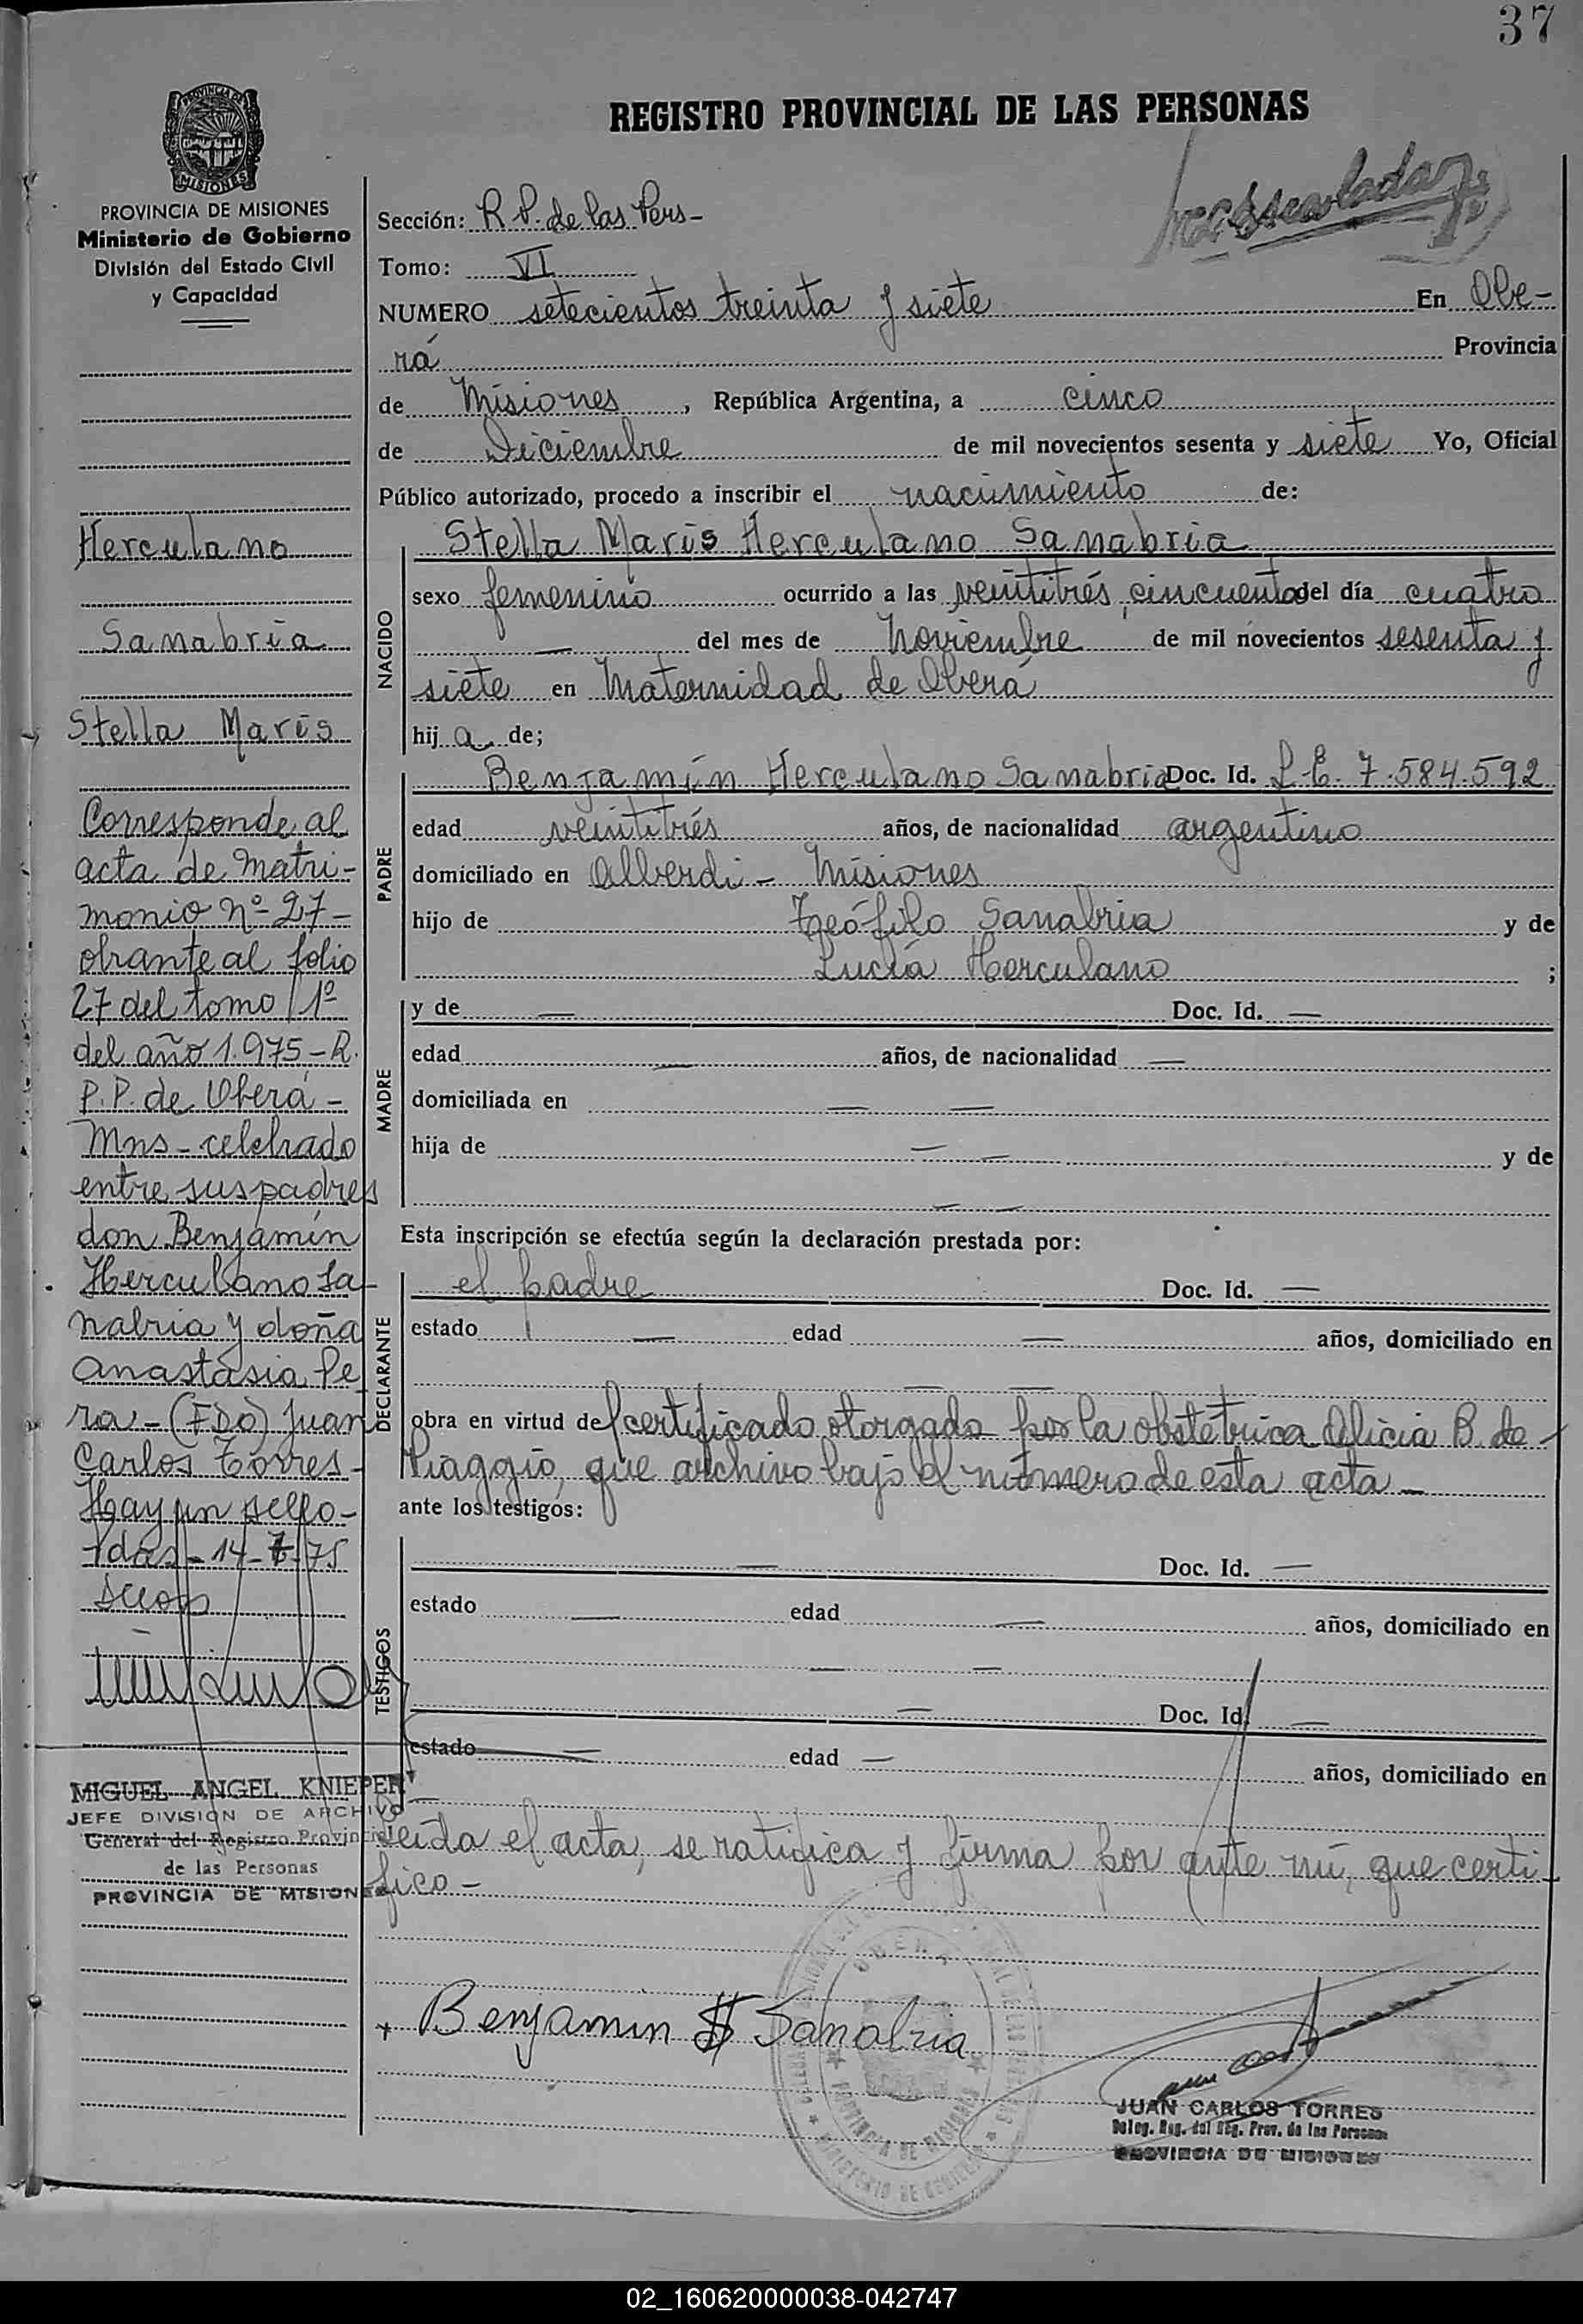 37
REGISTRO PROVINCIAL DE LAS PERSONAS
PROVINCIA DE MISIONES
MISIONES
PROVINCIA DE MISIONES
Ministerio de Gobierno
División del Estado Civil
y Capacidad
Herculano
Sanabria
Stella Maris
Corresponde al
acta de Matri-
monio nº 27-
obrante al folio
27 del tomo 1º
del año 1.975 - R.
P.P. de Oberá -
Mns - celebrado
entre sus padres
don Benjamín
Herculano Sa-
nabria y doña
Anastasia Pe
ra - (FDO) Juan
Carlos Torres -
Hay un sello -
Pdas - 14-7-75
MIGUEL ANGEL KNIEPER
JEFE DIVISION DE ARCHIVO
General del Registro Provincial
de las Personas
PROVINCIA DE MISIONES
Sección: R P. de las Pers -
Tomo: VI
NUMERO setecientos treinta y siete En Obe-
rá Provincia
de Misiones, República Argentina, a cinco
de Diciembre de mil novecientos sesenta y siete Yo, Oficial
Público autorizado, procedo a inscribir el nacimiento de:
Stella Maris Herculano Sanabria
NACIDO
sexo femenino ocurrido a las veintitrés, cincuenta del día cuatro
— del mes de Noviembre de mil novecientos sesenta y
siete en Maternidad de Oberá
hij a de;
PADRE
Benjamín Herculano Sanabria Doc. Id. L.E. 7.584.592
edad veintitrés años, de nacionalidad argentino
domiciliado en Alberdi - Misiones
hijo de Teófilo Sanabria y de
Lucía Herculano ;
MADRE
y de — Doc. Id. —
edad — años, de nacionalidad —
domiciliada en — —
hija de — — y de
— —
Esta inscripción se efectúa según la declaración prestada por:
DECLARANTE
el padre Doc. Id. —
estado — edad — años, domiciliado en
— —
obra en virtud del certificado otorgado por la obstétrica Alicia B. de
Piaggio, que archivo bajo el número de esta acta -
ante los testigos:
TESTIGOS
— Doc. Id. —
estado — edad — años, domiciliado en
— —
— Doc. Id. —
estado — edad — años, domiciliado en
—
Leída el acta, se ratifica y firma por ante mí, que certi-
fico -
+ Benjamin H Sanabria
OBERA
PROVINCIA DE MISIONES
MINISTERIO DE GOBIERNO
JUAN CARLOS TORRES
Deleg. Reg. del Reg. Prov. de las Personas
PROVINCIA DE MISIONES
02_160620000038-042747